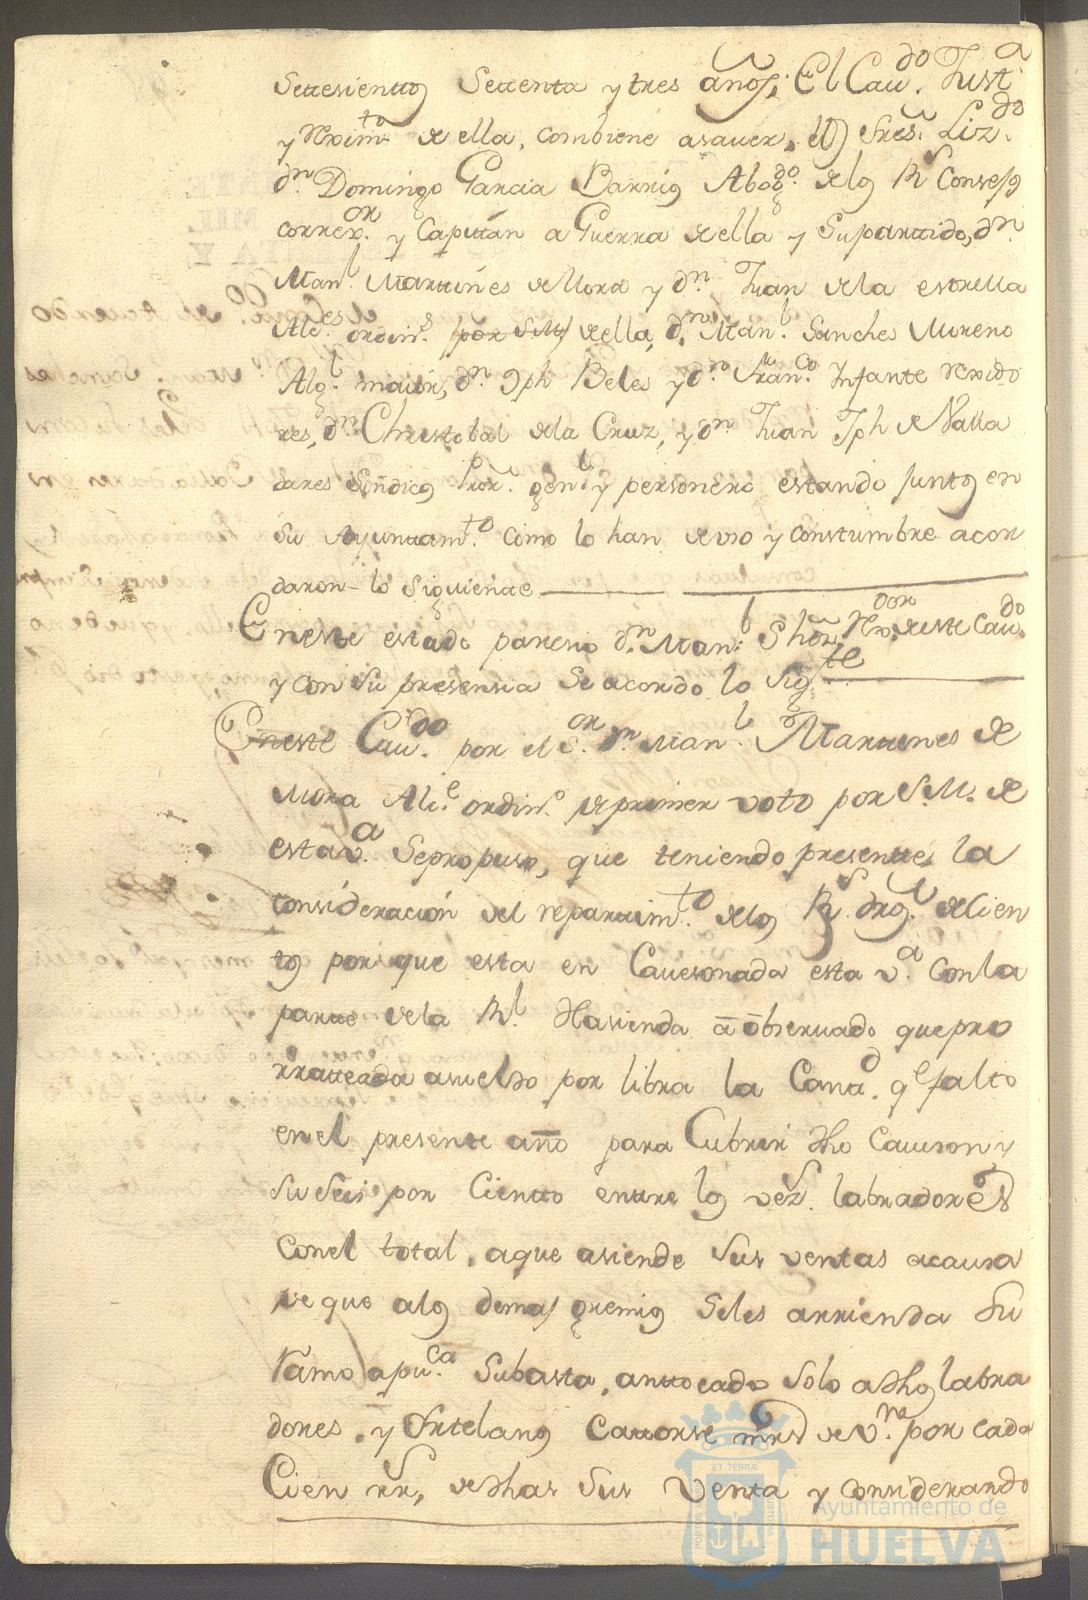 Settesientos Settenta y tres años; El Cavdo. Justa
y Reximto de ella, combiene asaver, los Sres. Lizdo
dn Domingo Garcia Barrios Abogdo. de los Rs Consejos
correxor. y Capitan a Guerra de ella y Supartido, dn
Manl Martines de Mora y dn Juan de la estrella
Alces. ordins. por SM de ella, dn. Manl Sanches Moreno
Algl. maior, dn Jph Beles y dn Franco Infante rexido
res, dn Christobal de la Cruz, y dn Juan Jph de Valla
dares Sindicos Pror. genl y personero estando juntos en
su Ayuntamto como lo han de uso y constumbre acor
daron lo siguiente
En este estado parecio dn Manl Rexdor de este Cavdo
y con su presensia se acordo lo Sigte
En este Cavdo por el Sor dn Manl Martines de
Mora Alce ordino de primer voto por S.M. de
esta va Sepropuso, que teniendo presente la
consideracion del repartimto de los Rs dros de cien
tos por que esta en Cavesonada esta va con la
parte de la Rl Hasienda a observado que pro
rratteada asueldo por libra la Cantd qe falto
en el presente año para Cubrir dho Caveson y
su seis por Ciento entre los vezs labradores
con el total, a que asiende sus ventas a causa
de que a los demas gremios Seles arrienda su
ramo a puca Subasta, a ttocado solo a dhos labra
dores, y Ortelanos Cattorse mrs de Vn por cada
Cien rrs, de dhas sus Venta y considerando
Ayuntamiento de
HUELVA